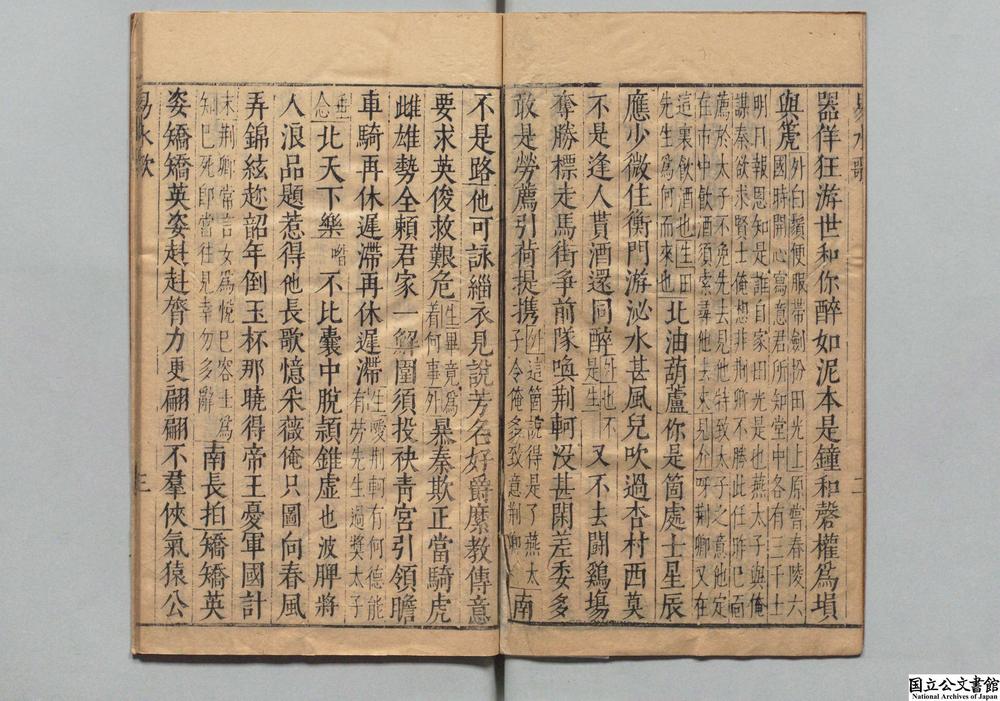 易水歌
二
器佯狂游世和你醉如泥本是鐘和磬權爲塤
與箎外白鬚便服帶劍扮田光上原嘗春陵六
國時開心寫意君所知堂中各有三千士
明日報恩知是誰自家田光是也燕太子與俺
謀秦欲求賢士俺想非荆卿不勝此任昨已面
薦於太子不免先去見他特致太子之意他定
在市中飲酒須索尋他去末見介呀荆卿又在
這裏飲酒也生田
先生爲何而來也北油葫蘆你是箇處士星辰
應少微住衡門游泌水甚風兒吹過杏村西莫
不是逢人貰酒還同醉外也不是生又不去鬪鷄塲
奪勝標走馬街爭前隊喚荆軻没甚閑差委多
敢是勞薦引荷提携外這箇說得是了燕太子令俺多致意荆卿南
不是路他可詠緇衣見說芳名好爵縻教傳意
要求英俊救艱危生畢竟爲着何事外暴秦欺正當騎虎
雌雄勢全賴君家一解圍須投袂靑宮引領瞻
車騎再休遲滯再休遲滯生噯荆軻有何德能有勞先生過奬太子
垂念北天下樂喒不比囊中脫頴錐虛也波脾將
人浪品題惹得他長歌憶采薇俺只圖向春風
弄錦絃趂韶年倒玉杯那曉得帝王憂軍國計
末荆卿常言女爲悅巳容士爲
知巳死即當往見幸勿多辭南長拍矯矯英
姿矯矯英姿赳赳膂力更翩翩不羣俠氣猿公
易水歌
三
国立公文書館
National Archives of Japan